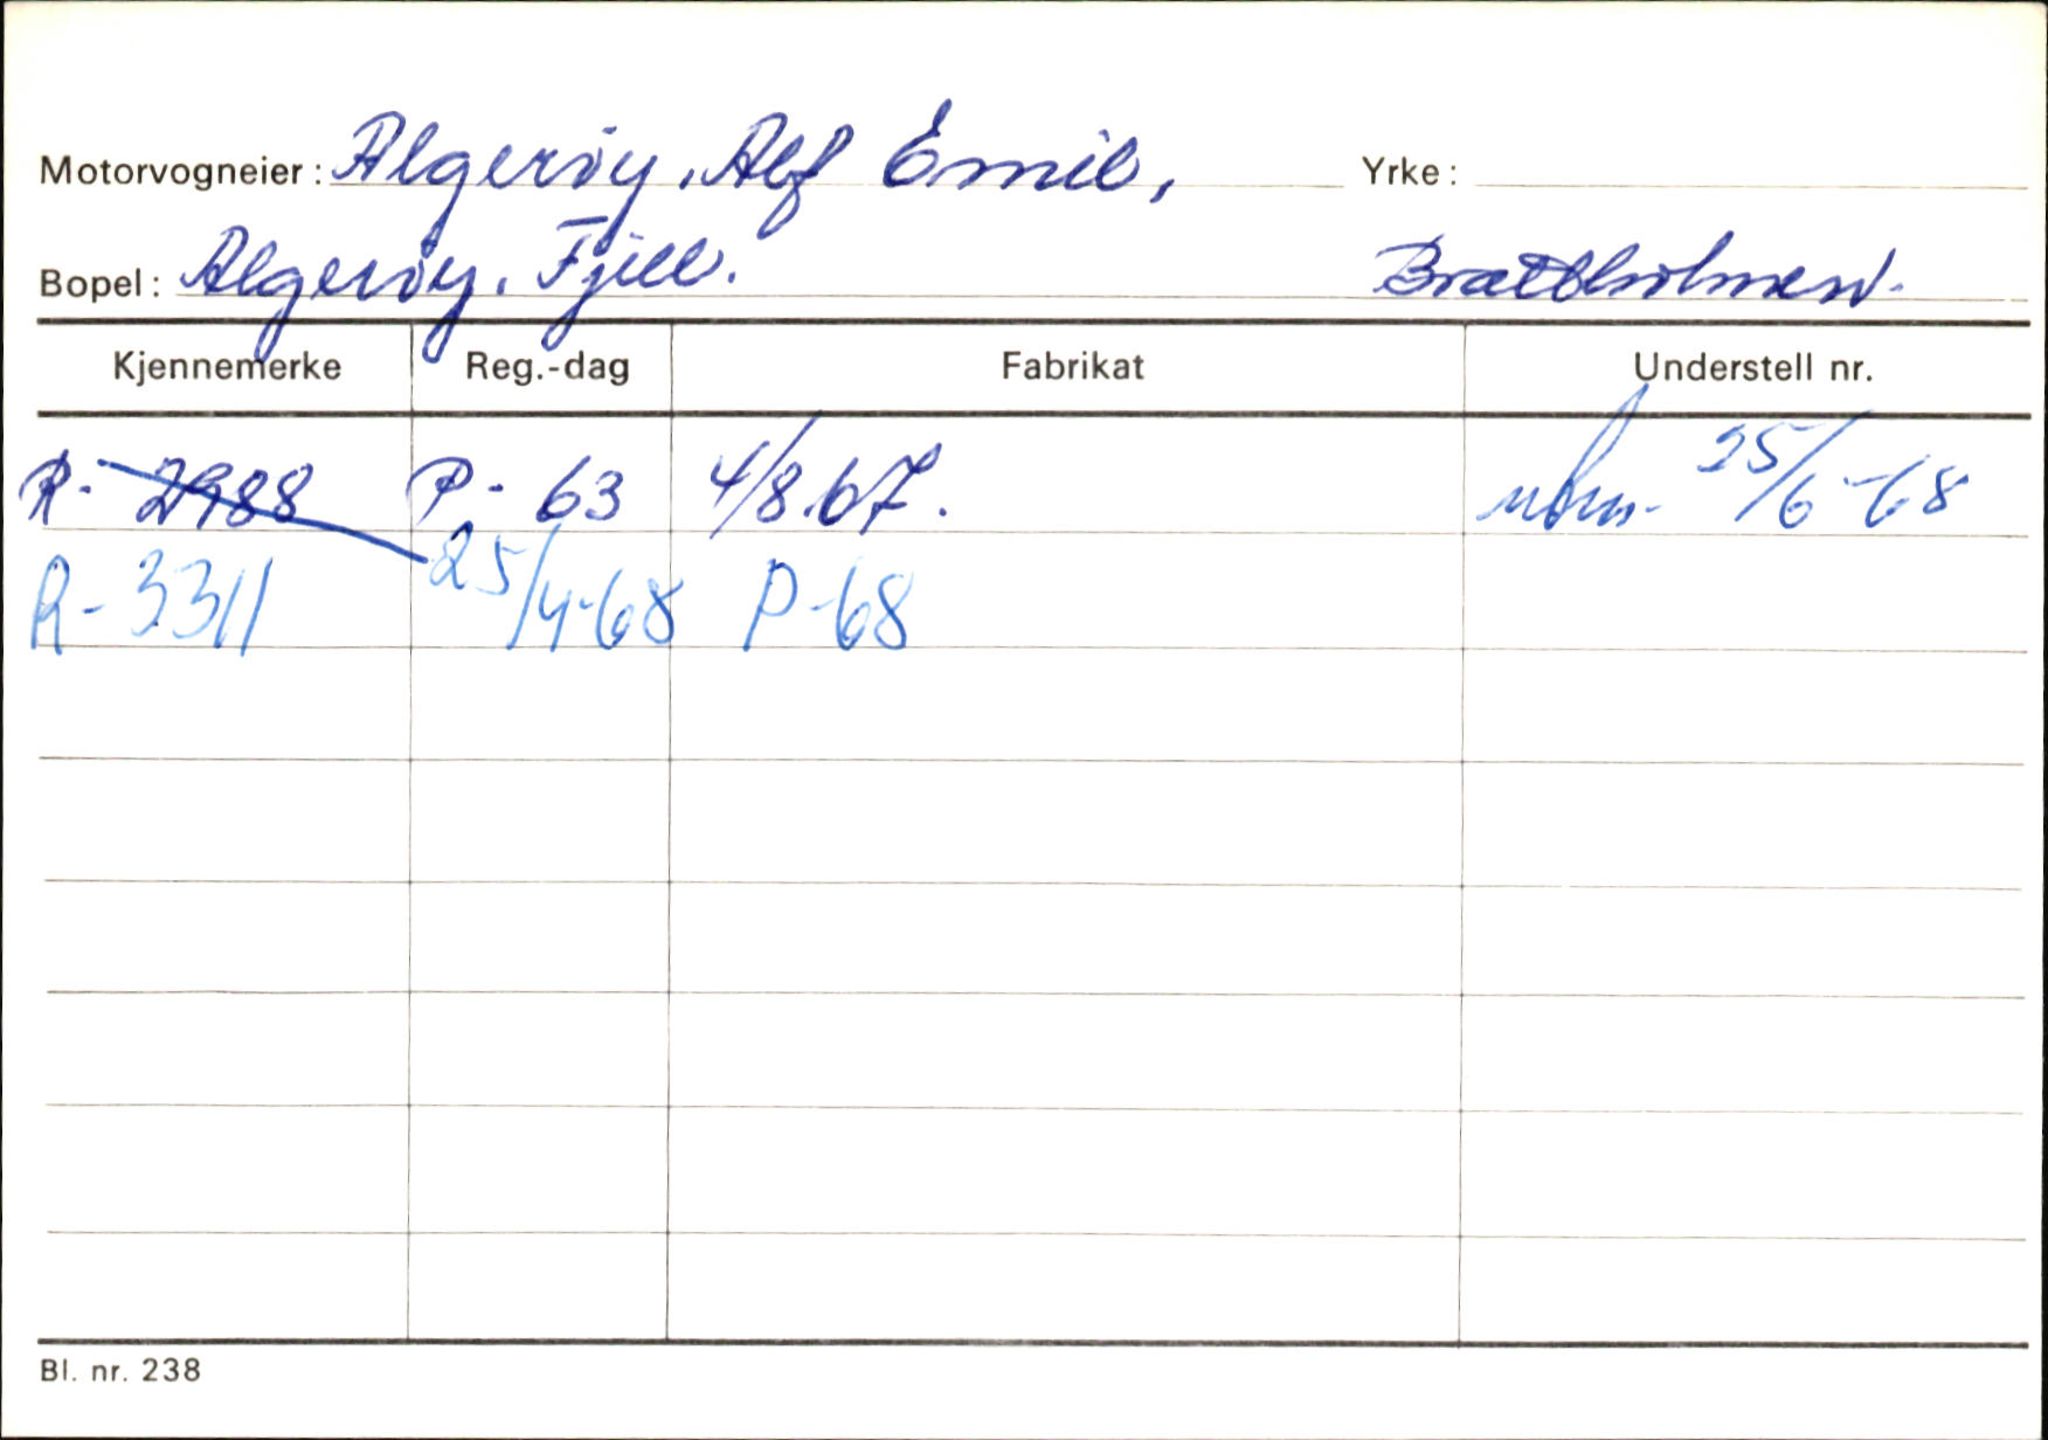 Motorvogneier: Algerøy, Alf Emil, Yrke:
Bopel: Algerøy. Fjell. Brattholmen.
Kjennemerke Reg.-dag Fabrikat Understell nr.
R- 2988 P- 63 4/8.67. 25/6-68
R-3311 25/4-68 P-68
Bl. nr. 238